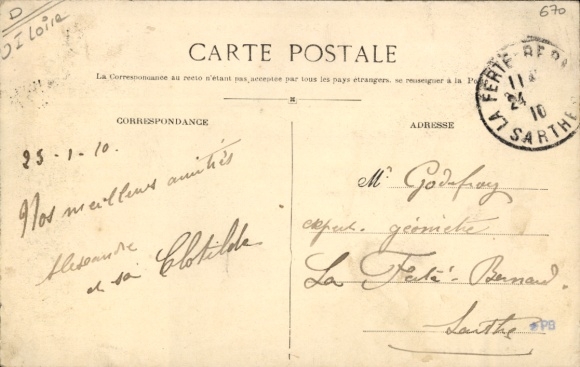 D
I Loire
670
CARTE POSTALE
La Correspondance au recto n'étant pas acceptée par tous les pays étrangers, se renseigner à la
LA FERTÉ-BER
11
24
10
SARTHE
CORRESPONDANCE
ADRESSE
25-1-10.
Nos meilleurs amitiés
Alexandre
et sa Clotilde
Mr Godefroy
expert-géomètre
La Ferté-Bernard.
Sarthe
PB